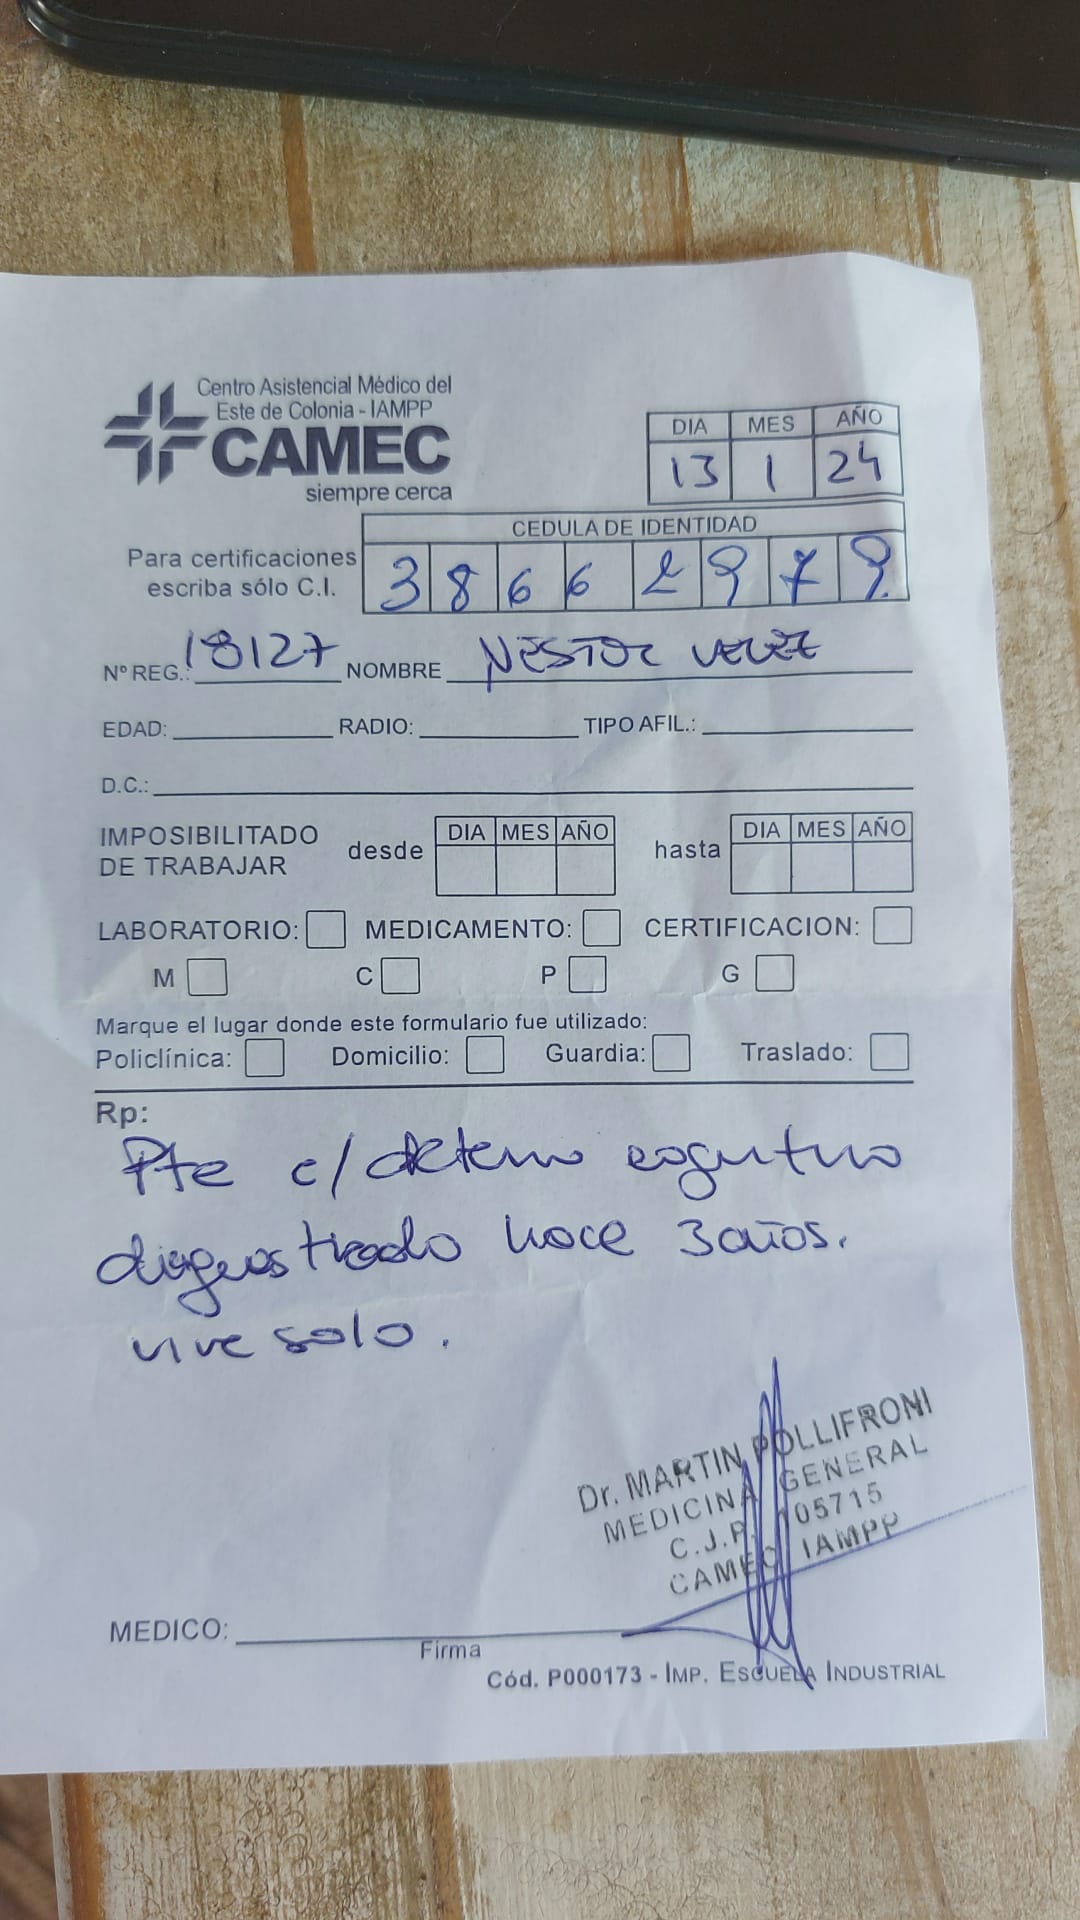 Centro Asistencial Médico del
Este de Colonia - IAMPP
CAMEC
siempre cerca
DIA MES AÑO
13 1 24
CEDULA DE IDENTIDAD
Para certificaciones
escriba sólo C.I.
3 8 6 6 2 9 7 9
Nº REG.: 18127 NOMBRE NESTOR VELEZ
EDAD: RADIO: TIPO AFIL.:
D.C.:
IMPOSIBILITADO
DE TRABAJAR
desde DIA MES AÑO hasta DIA MES AÑO
LABORATORIO: MEDICAMENTO: CERTIFICACION:
M C P G
Marque el lugar donde este formulario fue utilizado:
Policlínica: Domicilio: Guardia: Traslado:
Rp:
Pte c/ deterioro cognitivo
diagnosticado hace 3 años.
vive solo.
Dr. MARTIN POLLIFRONI
MEDICINA GENERAL
C.J.P. 105715
CAMEC IAMPP
MEDICO:
Firma
Cód. P000173 - IMP. ESCUELA INDUSTRIAL